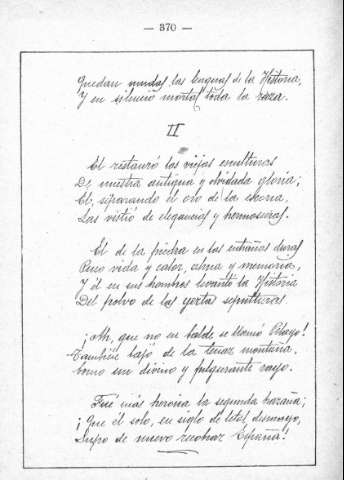 — 370 —
Quedan mudas las lenguas de la Historia,
Y en silencio mortal toda la raza.
II
Él restauró las viejas esculturas
De nuestra antigua y olvidada gloria;
Él, separando el oro de la escoria,
Las vistió de elegancias y hermosuras.
Él de la piedra en las entrañas duras
Puso vida y calor, alma y memoria,
Y él en sus hombros levantó la Historia
Del polvo de las yertas sepulturas.
¡Ah, que no en balde se llamó Pelayo!
También bajó de la tenaz montaña,
como un divino y fulgurante rayo.
Fué más heroica la segunda hazaña;
¡Que él solo, en siglo de letal desmayo,
Supo de nuevo recobrar España!